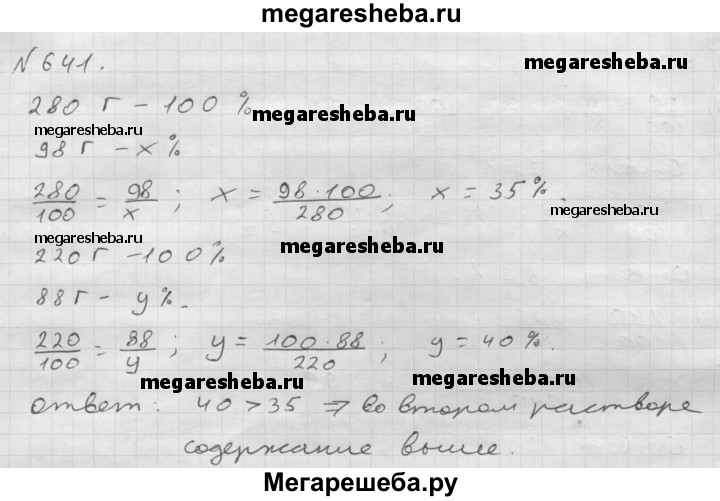 megaresheba.ru
N 641.
280 г - 100 %
megaresheba.ru
megaresheba.ru
98 г - x %
280/100 = 98/x ; x = 98·100/280 ; x = 35 % .
megaresheba.ru
megaresheba.ru
220 г - 100 %
88 г - y % .
220/100 = 88/y ; y = 100·88/220 ; y = 40 % .
megaresheba.ru
megaresheba.ru
ответ : 40 > 35 ⇒ во втором растворе
содержание выше.
Мегарешеба.ру